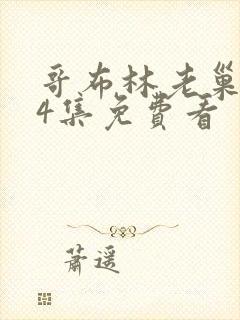 哥布林老巢
4集免費看
蕭遥